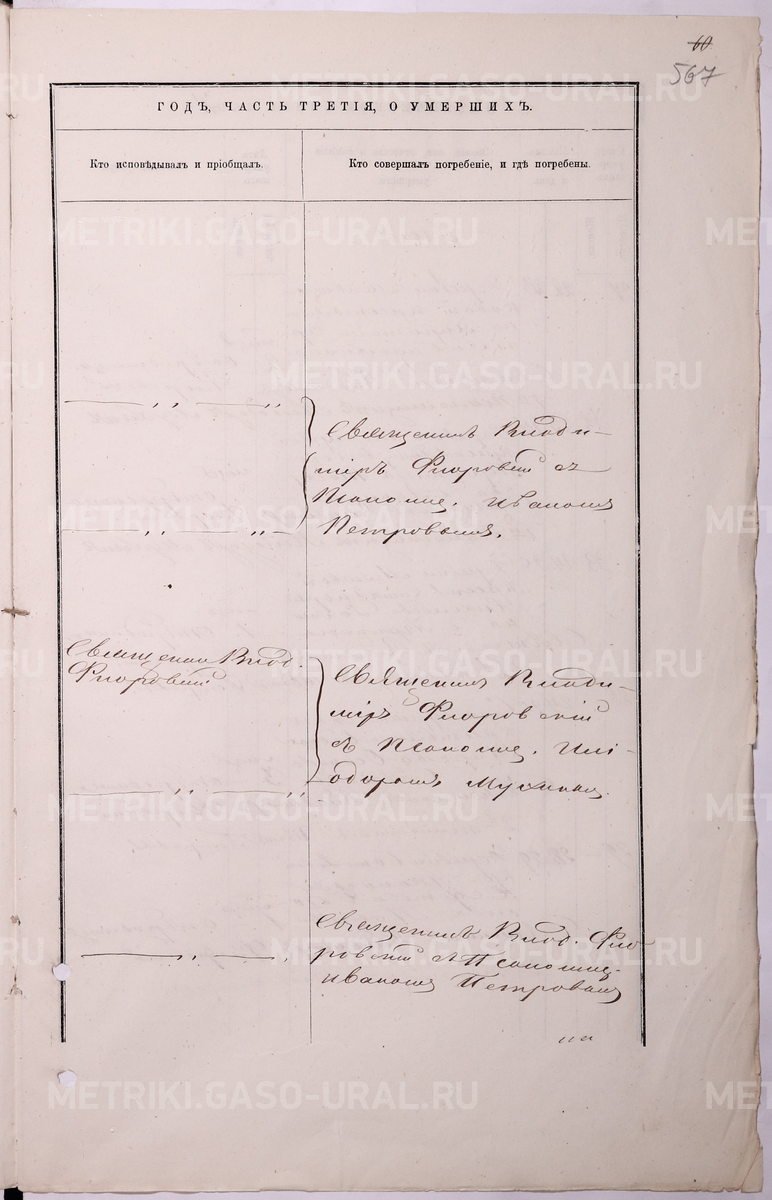 60
567
ГОДЪ, ЧАСТЬ ТРЕТІЯ, О УМЕРШИХЪ.
Кто исповѣдывалъ и пріобщалъ.
Кто совершалъ погребеніе, и гдѣ погребены.
Священникъ Влади-
міръ Флоровскій съ
Псаломщ. Иваномъ
Петровымъ.
Священникъ Влад.
Флоровскій
Священникъ Влади-
міръ Флоровскій
съ Псаломщ. Илі-
одоромъ
Священникъ Влад. Фло-
ровскій съ Псаломщ.
Иваномъ Петровымъ
METRIKI.GASO-URAL.RU